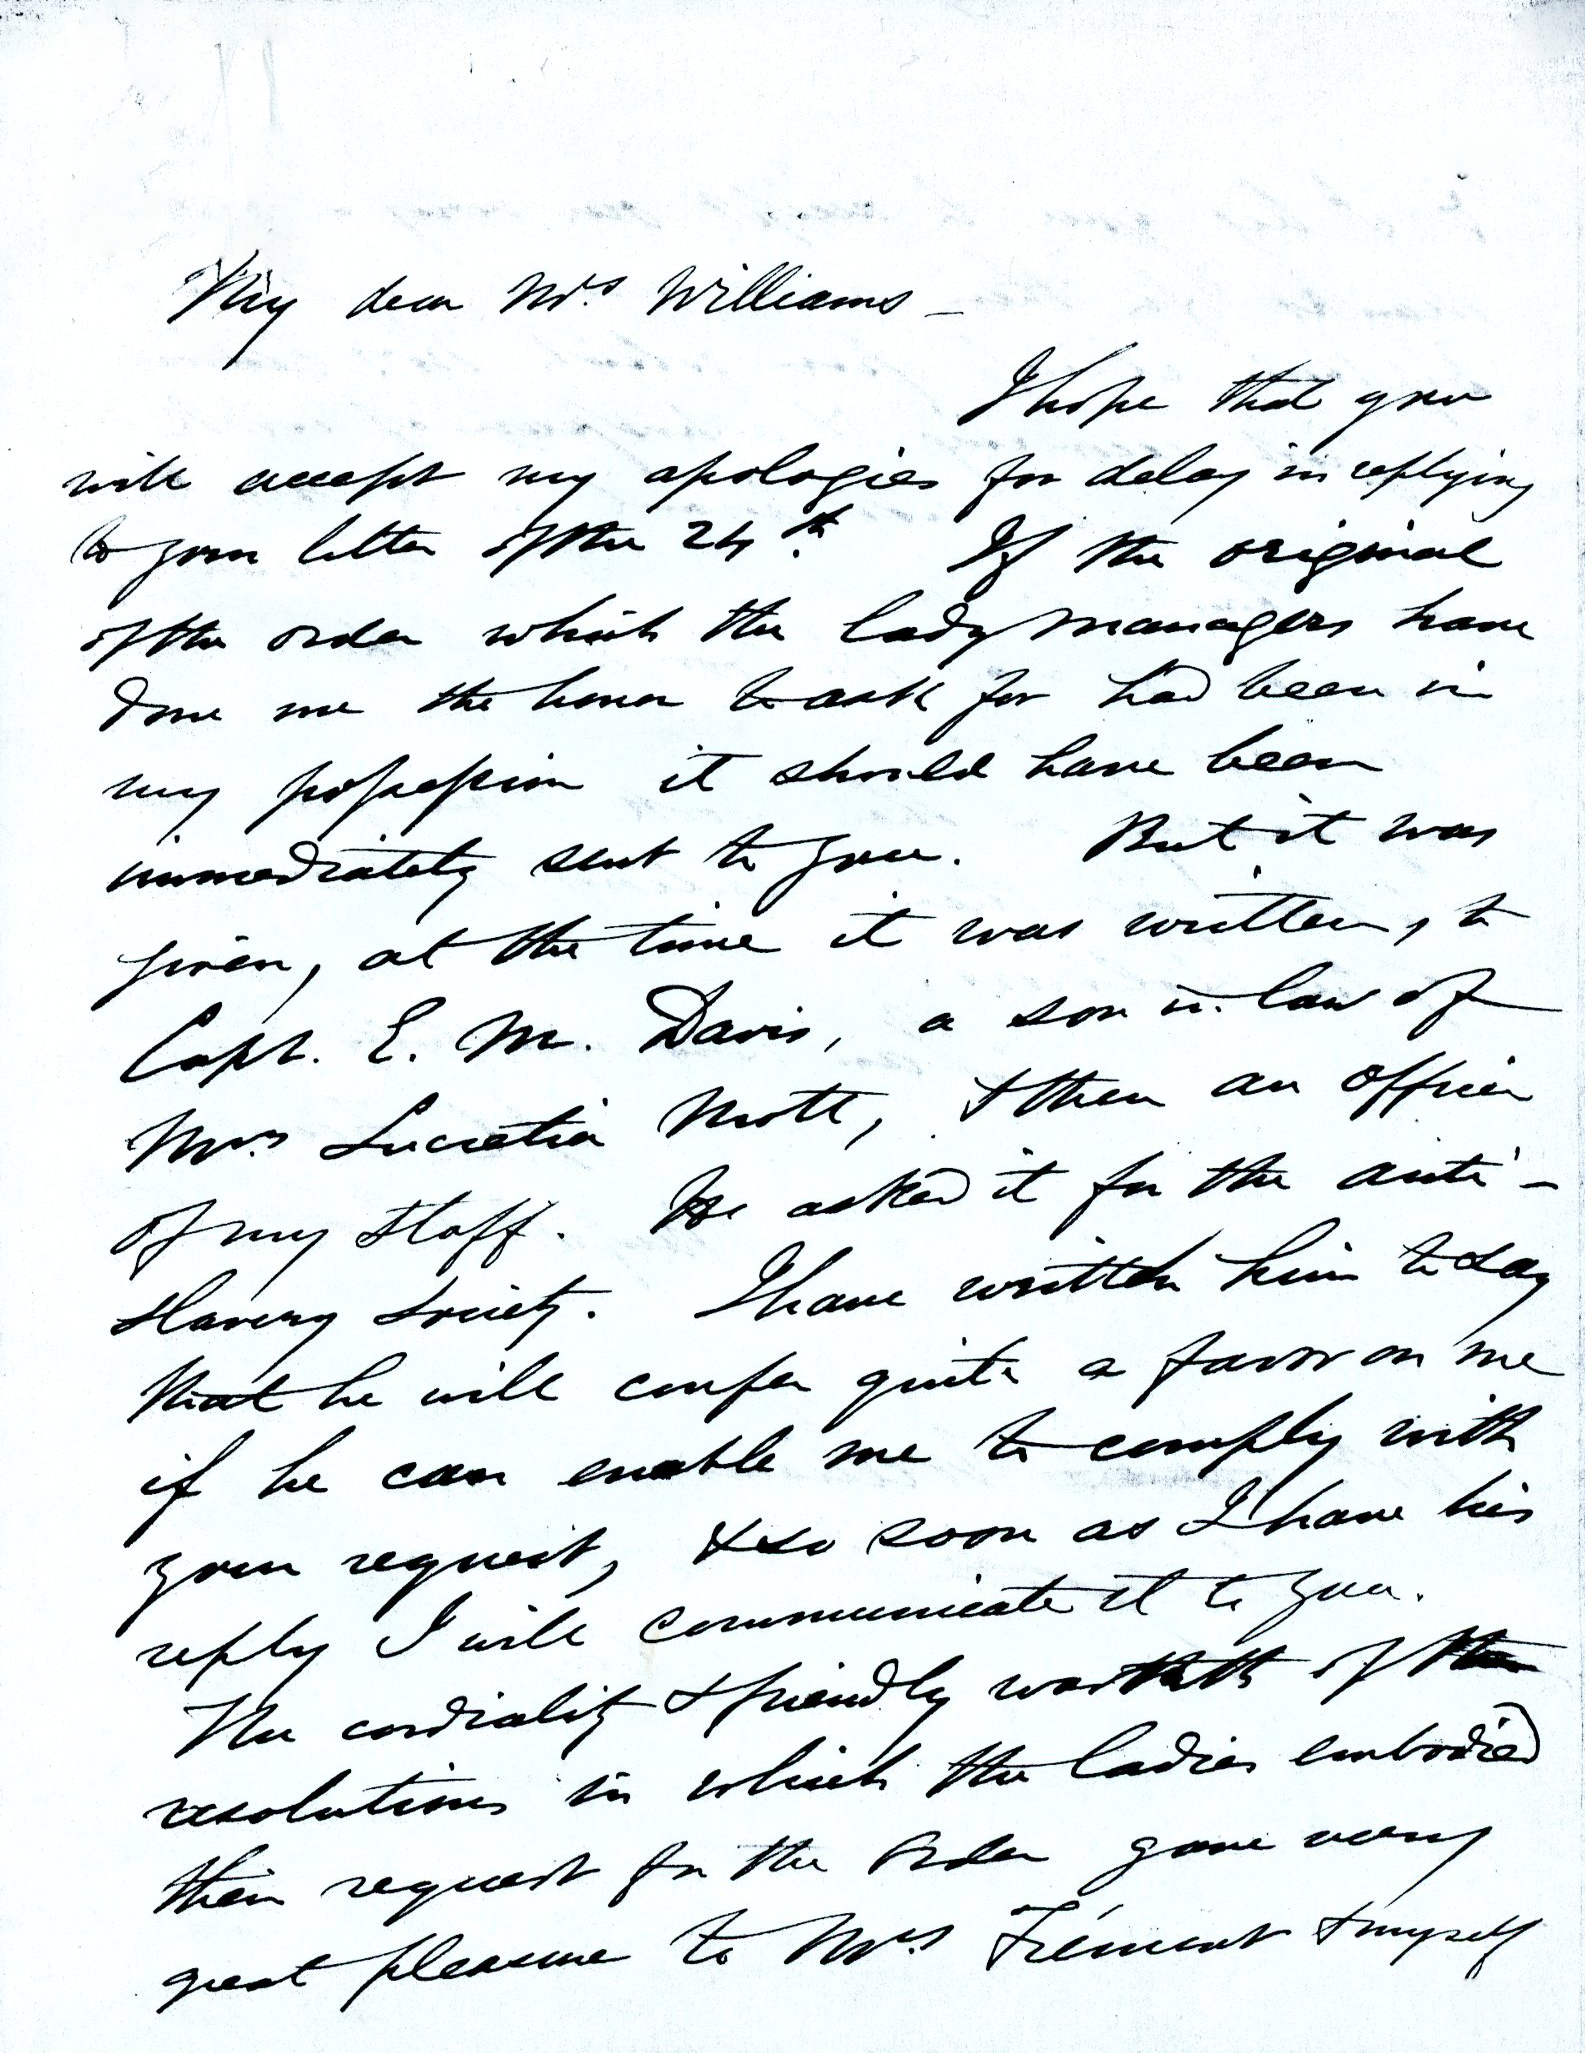 My dear Mrs. Williams –
I hope that you
will accept my apologies for delay in replying
to your letter of the 24th. If the original
of the order which the lady managers have
done me the honor to ask for had been in
my possession it should have been
immediately sent to you. But it was
given, at the time it was written, to
Capt. E. M. Davis, a son in law of
Mrs. Lucretia Mott, & then an officer
of my staff. He asked it for the anti-
slavery society. I have written him to say
that he will confer quite a favor on me
if he can enable me to comply with
your request, & so soon as I have his
reply I will communicate it to you.
The cordiality & friendly warmth of the
resolutions in which the ladies embodied
their request for the order gave very
great pleasure to Mrs. Frémont & myself